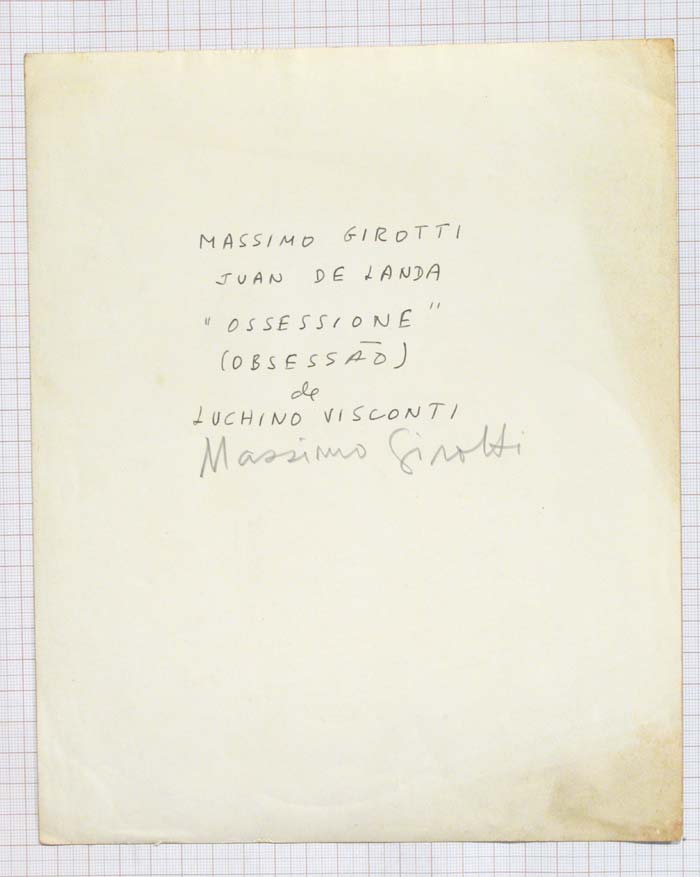 MASSIMO GIROTTI
JUAN DE LANDA
"OSSESSIONE"
(OBSESSÃO)
de
LUCHINO VISCONTI
Massimo Girotti